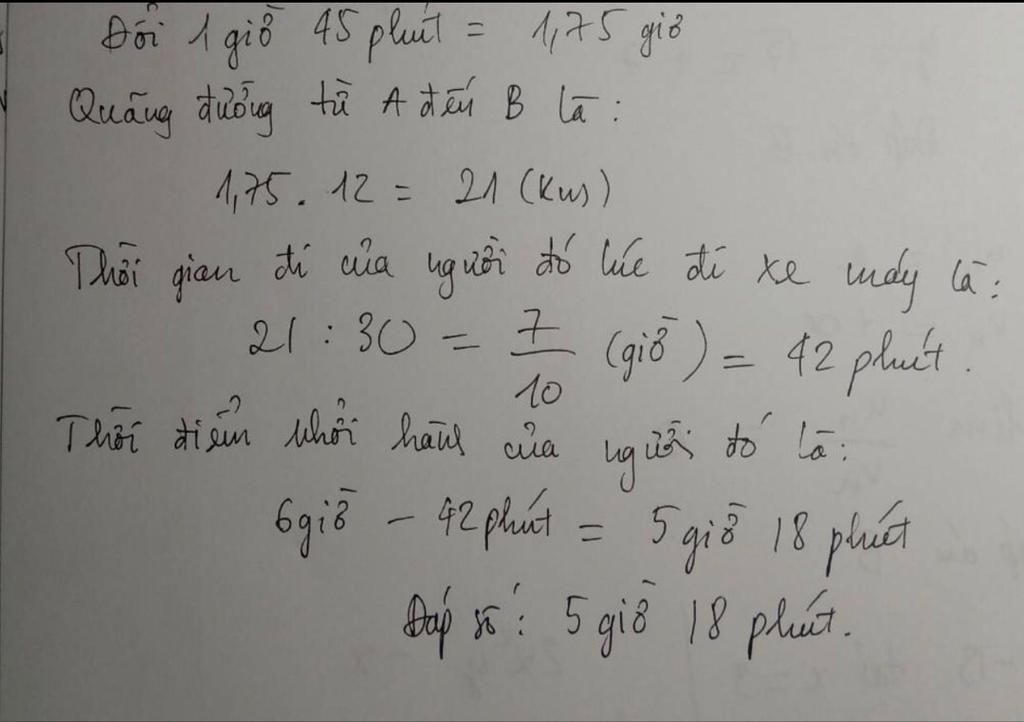 Đổi 1 giờ 45 phút = 1,75 giờ
Quãng đường từ A đến B là:
1,75 . 12 = 21 (Km)
Thời gian đi của người đó lúc đi xe máy là:
21 : 30 = 7/10 (giờ) = 42 phút.
Thời điểm khởi hành của người đó là:
6 giờ - 42 phút = 5 giờ 18 phút
Đáp số: 5 giờ 18 phút.